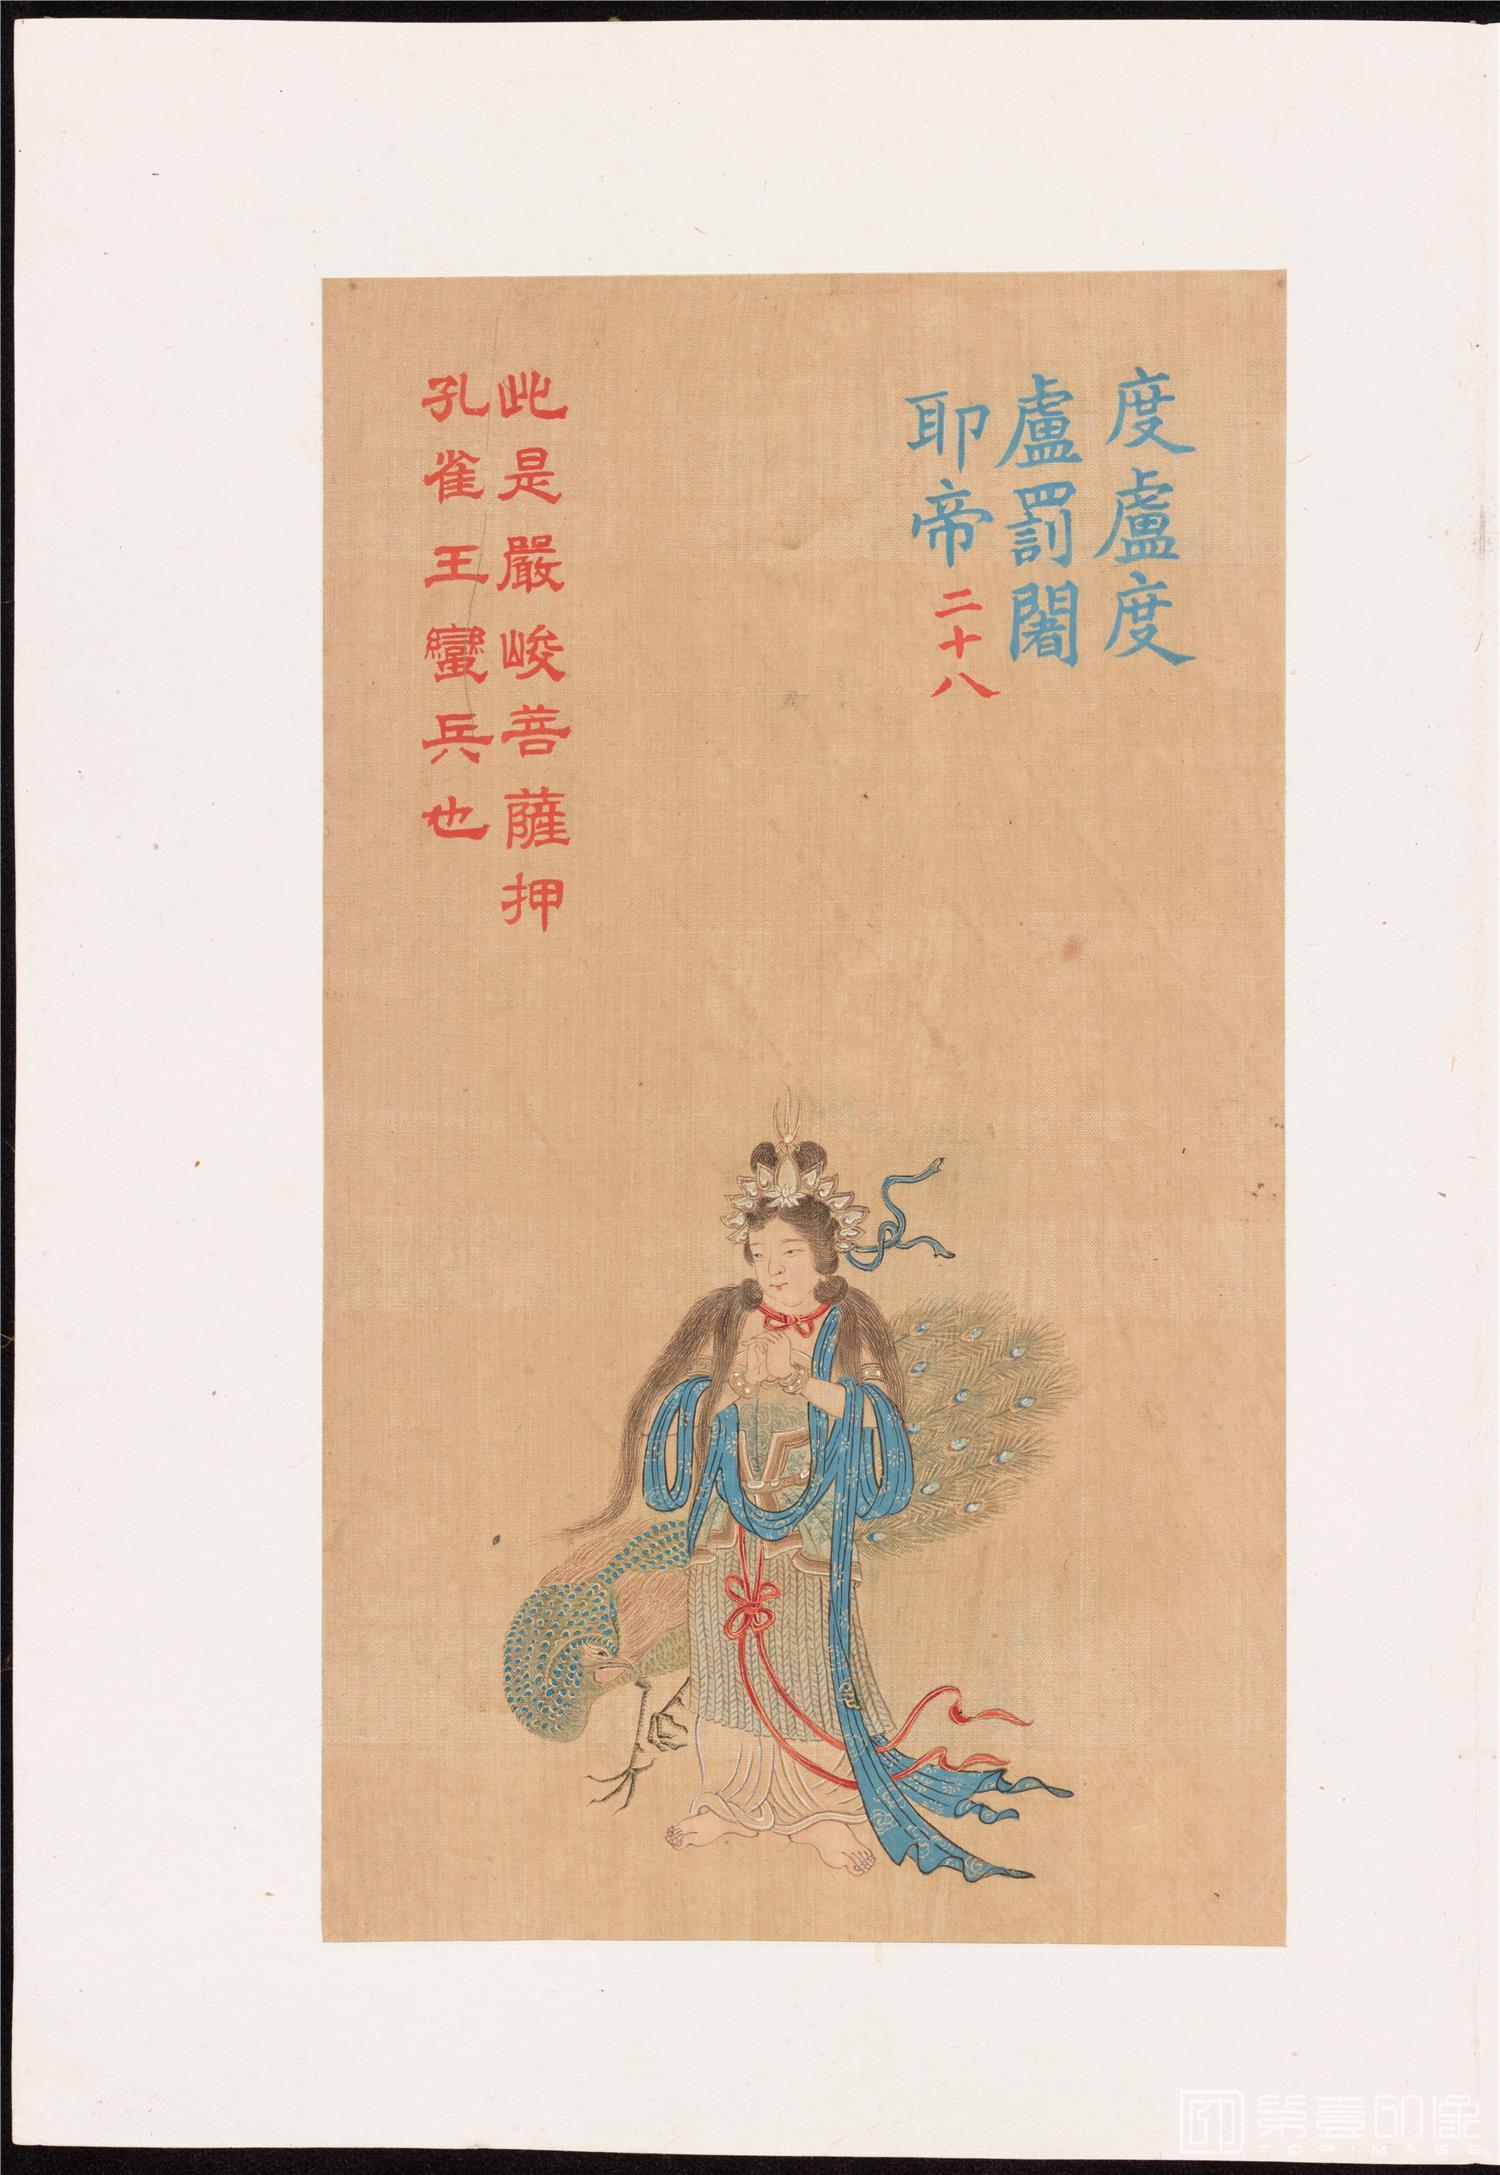 度盧度
盧罰闍
耶帝二十八
此是嚴峻菩薩押
孔雀王蠻兵也
第壹印像
TOPIMAGE